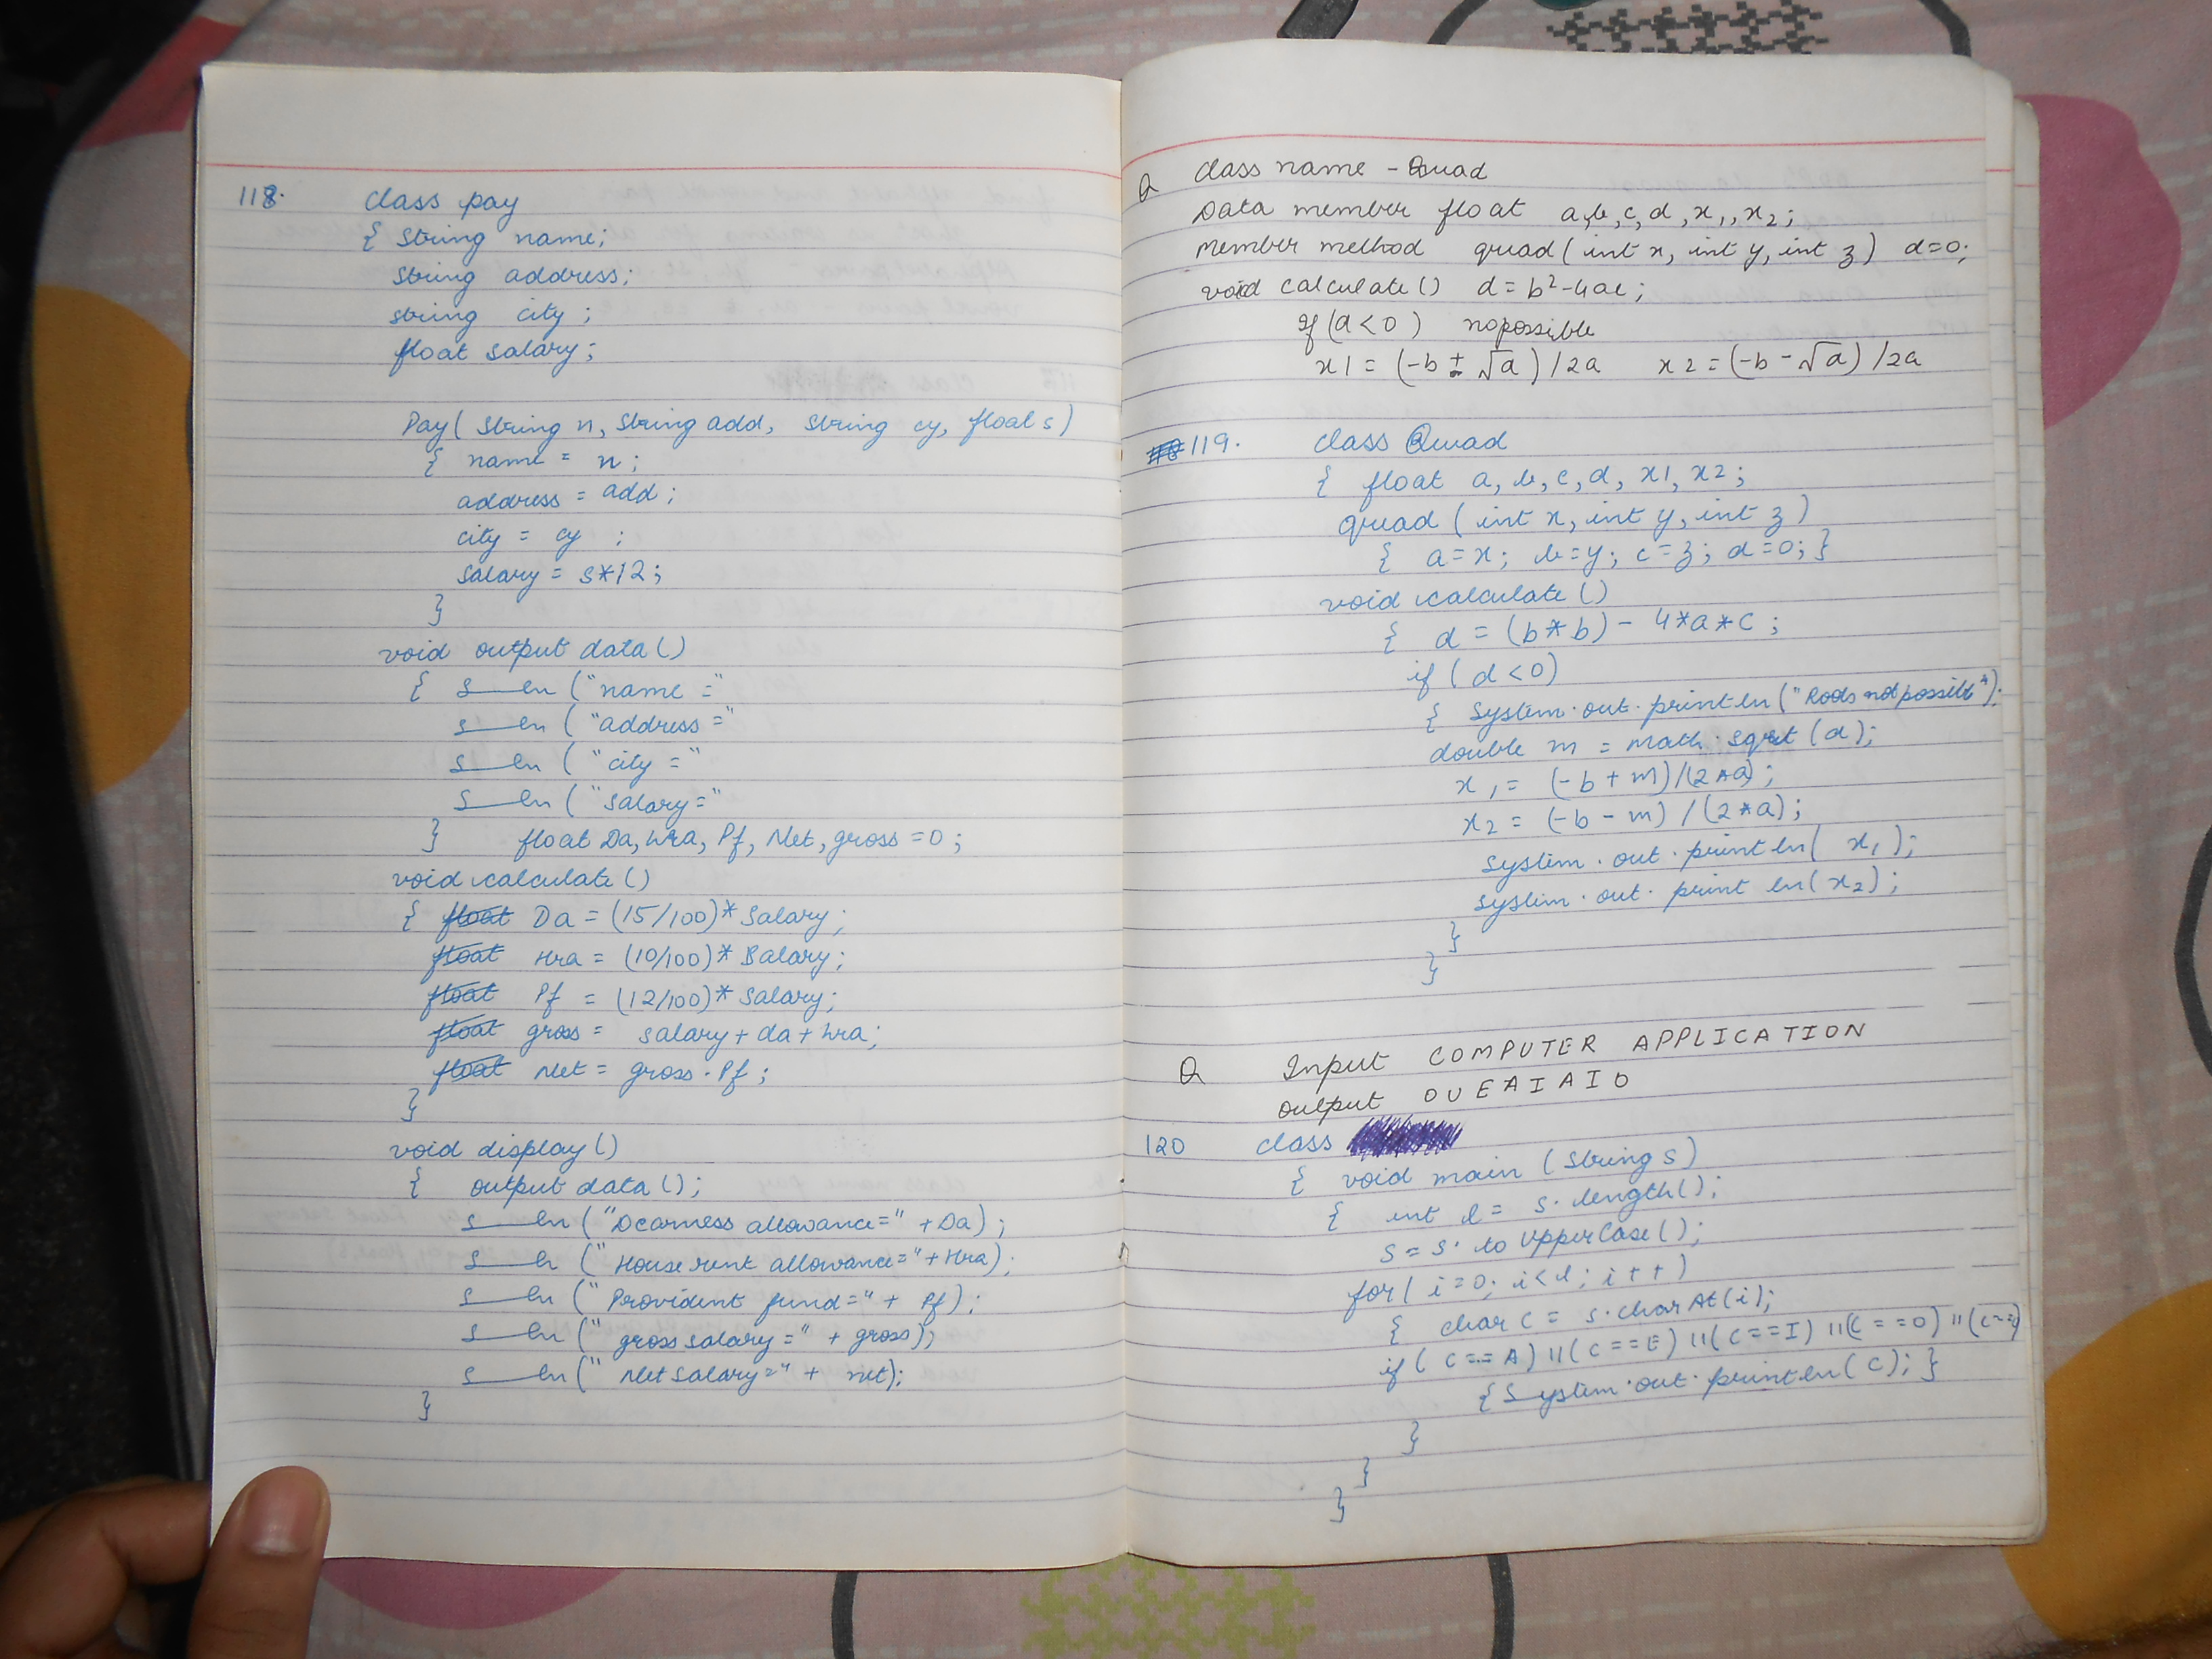 118. class pay
{ String name;
String address;
string city ;
float salary;
Pay( String n, String add, String cy, float s)
{ name = n;
address = add;
city = cy ;
salary = s*12;
}
void output data()
{ s—ln ("name ="
s—ln ("address ="
s—ln ("city ="
s—ln ("salary="
} float Da, hra, Pf, Net, gross = 0;
void calculate()
{ float Da = (15/100)* Salary;
float Hra = (10/100)* Salary;
float Pf = (12/100)* Salary;
float gross = salary + da + hra;
float Net = gross - Pf;
}
void display()
{ output data();
s—ln ("Dearness allowance=" + Da);
s—ln ("House rent allowance=" + Hra);
s—ln ("Provident fund=" + Pf);
s—ln (" gross salary =" + gross);
s—ln (" Net salary=" + net);
}
Q class name - Quad
Data member float a,b,c,d,x1,x2;
member method quad(int x, int y, int z) d=0;
void calculate() d = b²-4ac;
If (d<0) nopossible
x1 = (-b ± √d) /2a x2 = (-b - √d) /2a
119. class Quad
{ float a, b, c, d, x1, x2;
quad (int x, int y, int z)
{ a=x; b=y; c=z; d=0; }
void calculate()
{ d = (b*b) - 4*a*c ;
if (d<0)
{ System.out.println("Roots not possible");
double m = math.sqrt(d);
x1 = (-b+m)/(2*a);
x2 = (-b-m)/(2*a);
System.out.println( x1);
System.out.println(x2);
}
}
Q Input COMPUTER APPLICATION
output OUEAIAIO
120 class
{ void main (String s)
{ int l = s.length();
s = s.to UpperCase();
for( i=0; i<l; i++)
{ char c = s.charAt(i);
if (c==A) ||(c==E) ||(c==I) ||(c==O) ||(c==
{System.out.println(c); }
}
}
}